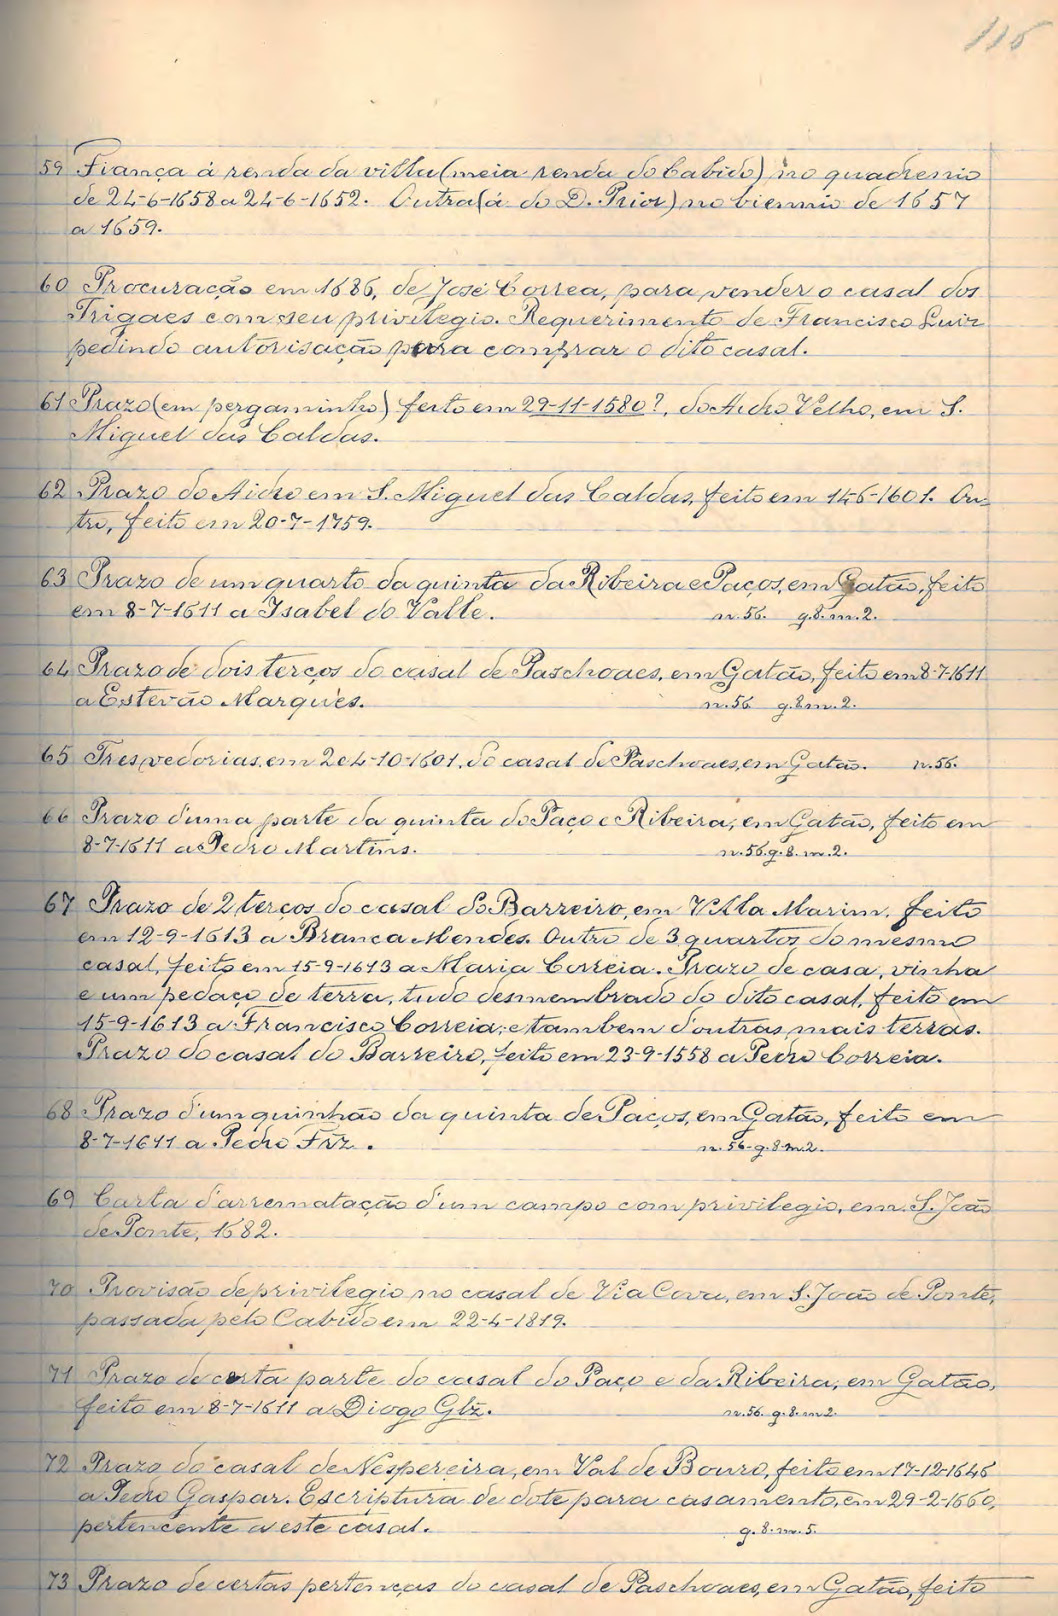 115
59 Fiança á renda da villa (meia renda do Cabido) no quadrennio
de 24-6-1658 a 24-6-1652. Outra (á do D. Prior) no biennio de 1657
a 1659.
60 Procuração em 1686, de José Correa, para vender o casal dos
Trigaes com seu privilegio. Requerimento de Francisco Luiz
pedindo autorisação para comprar o dito casal.
61 Prazo (em pergaminho) feito em 29-11-1580?, do Aidro Velho, em S.
Miguel das Caldas.
62 Prazo do Aidro em S. Miguel das Caldas, feito em 14-6-1601. Ou-
tro, feito em 20-7-1759.
63 Prazo de um quarto da quinta da Ribeira e Paços, em Gatão, feito
em 8-7-1611 a Isabel do Valle. n. 56. g. 8. m. 2.
64 Prazo de dois terços do casal de Paschoaes, em Gatão, feito em 8-7-1611
a Estevão Marques. n. 56 g. 8 m. 2.
65 Tres vedorias, em 2 e 4-10-1601, do casal de Paschoaes, em Gatão. n. 56.
66 Prazo d'uma parte da quinta do Paço e Ribeira, em Gatão, feito em
8-7-1611 a Pedro Martins. n. 56. g. 8. m. 2.
67 Prazo de 2 terços do casal do Barreiro, em Villa Marim, feito
em 12-9-1613 a Branca Mendes. Outro de 3 quartos do mesmo
casal, feito em 15-9-1613 a Maria Correia. Prazo de casa, vinha
e um pedaço de terra, tudo desmembrado do dito casal, feito em
15-9-1613 a Francisco Correia, e tambem d'outras mais terras.
Prazo do casal do Barreiro, feito em 23-9-1558 a Pedro Correia.
68 Prazo d'um quinhão da quinta de Paços, em Gatão, feito em
8-7-1611 a Pedro Frz. n. 56-g. 8-m. 2.
69 Carta d'arrematação d'um campo com privilegio, em S. João
de Ponte, 1682.
70 Provisão de privilegio no casal de Via Cova, em S. João de Ponte,
passada pelo Cabido em 22-4-1819.
71 Prazo de certa parte do casal do Paço e da Ribeira, em Gatão,
feito em 8-7-1611 a Diogo Glz. n. 56. g. 8. m 2.
72 Prazo do casal de Nespereira, em Val de Bouro, feito em 17-12-1646
a Pedro Gaspar. Escriptura de dote para casamento, em 29-2-1660,
pertencente a este casal. g. 8. m. 5.
73 Prazo de certas pertenças do casal de Paschoaes, em Gatão, feito